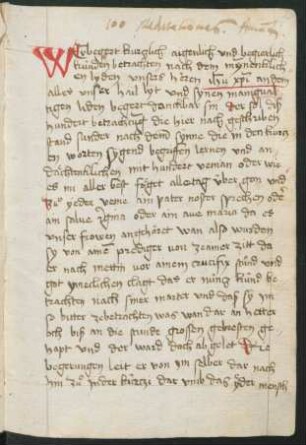 100 Meditationes
Wer begert kurtzlich aigenlich und begirlich
kunden betrachten nach dem mynenklich
en lyden unsers herren ihu xpi an dem
alles unser hail lyt und synen manigual
tigen liden begert danckbar sin der sol dis
hundert betrachtung die hier nach geschriben
stand sunder nach dem synne die in den kurtz
en worten sygend begriffen lernen und an
dachtenklichen mit hundert venian oder wie
es im aller best füget alle tag über gen und
zu yeder venie ain pater noster sprechen oder
ain salve regina oder ain ave maria da es
unser frowen angehoret wan also wurdon
sy von aim prediger von zeamer zitt da
er nach mettin vor ainem crucifix stund und
got ynneklichen clagt das er nüng kund be
trachten nach siner marter und das sy im
so bitter zebetrachten was wan dar an hetter
och bis an die stunde grossen gebresten ge
hapt und der ward dach ab gelet Die
begerungen leit er von im selber dar nach
im zu inder kürtzi dar umb das yeder mensch